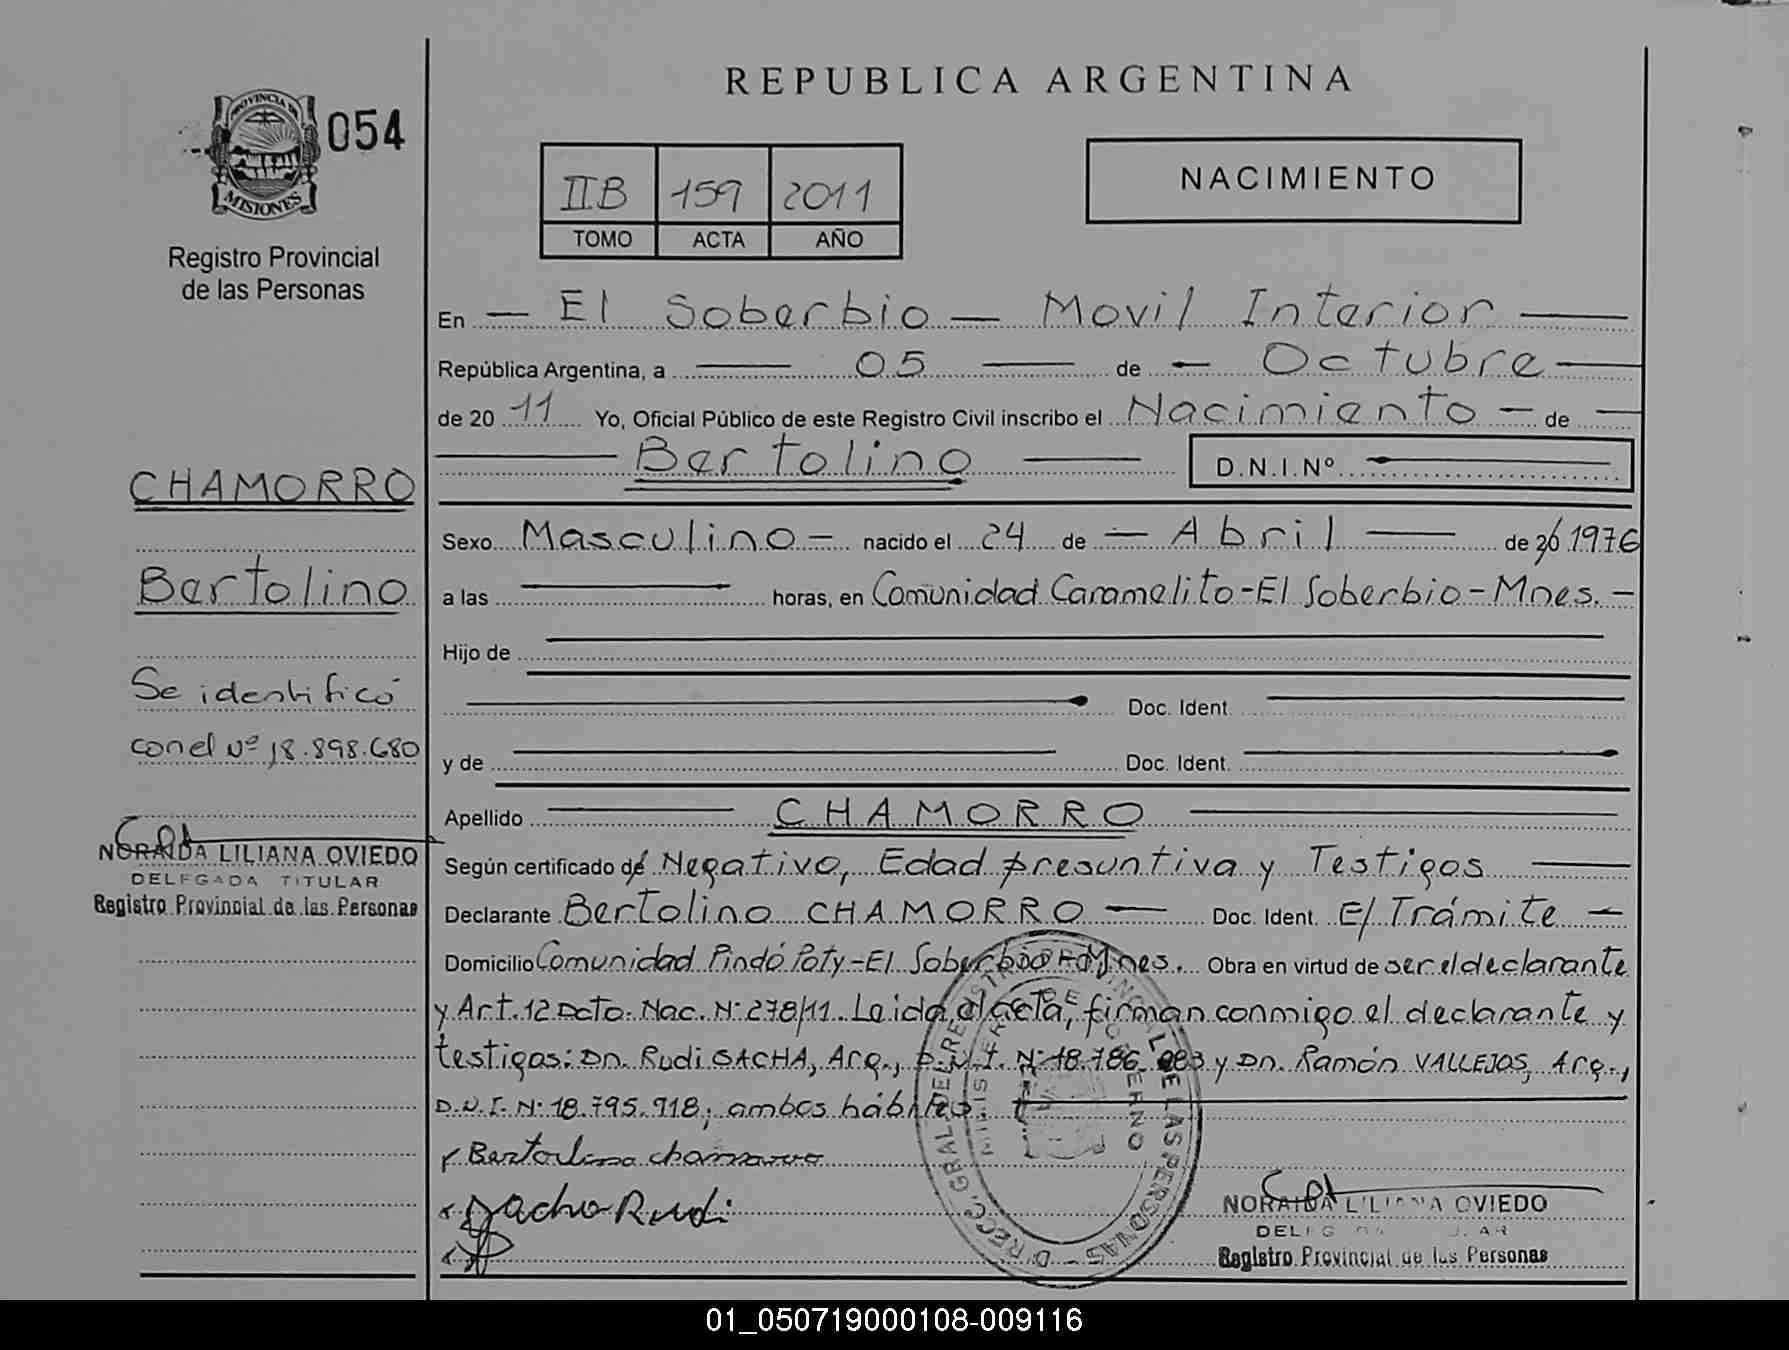 REPUBLICA ARGENTINA
PROVINCIA DE
MISIONES
054
Registro Provincial
de las Personas
IIB 159 2011
TOMO ACTA AÑO
NACIMIENTO
En — El Soberbio — Movil Interior —
República Argentina, a — 05 — de — Octubre —
de 20 11 Yo, Oficial Público de este Registro Civil inscribo el Nacimiento — de —
— Bertolino — D.N.I.Nº —
CHAMORRO
Bertolino
Se identificó
con el Nº 18.898.680
NORAIDA LILIANA OVIEDO
DELEGADA TITULAR
Registro Provincial de las Personas
Sexo Masculino — nacido el 24 de — Abril — de 20 1976
a las — horas, en Comunidad Caramelito - El Soberbio - Mnes. —
Hijo de —
— Doc. Ident. —
y de — Doc. Ident. —
Apellido — CHAMORRO —
Según certificado de Negativo, Edad presuntiva y Testigos —
Declarante Bertolino CHAMORRO — Doc. Ident. E/Trámite —
Domicilio Comunidad Pindó Poty - El Soberbio - Mnes. Obra en virtud de ser el declarante
y Art. 12 Dcto. Nac. Nº 278/11. Leida el acta, firman conmigo el declarante y
testigos: Dn. Rudi SACHA, Arg., D.N.I. Nº 18.786.983 y Dn. Ramón VALLEJOS, Arg.,
D.N.I. Nº 18.795.918, ambos hábiles. —
Bertolino chamorro
Jacho Rudi
DIRECC. GRAL. DEL REGISTRO PROVINCIAL DE LAS PERSONAS
MINISTERIO DE GOBIERNO
NORAIDA LILIANA OVIEDO
DELEGADA TITULAR
Registro Provincial de las Personas
01_050719000108-009116